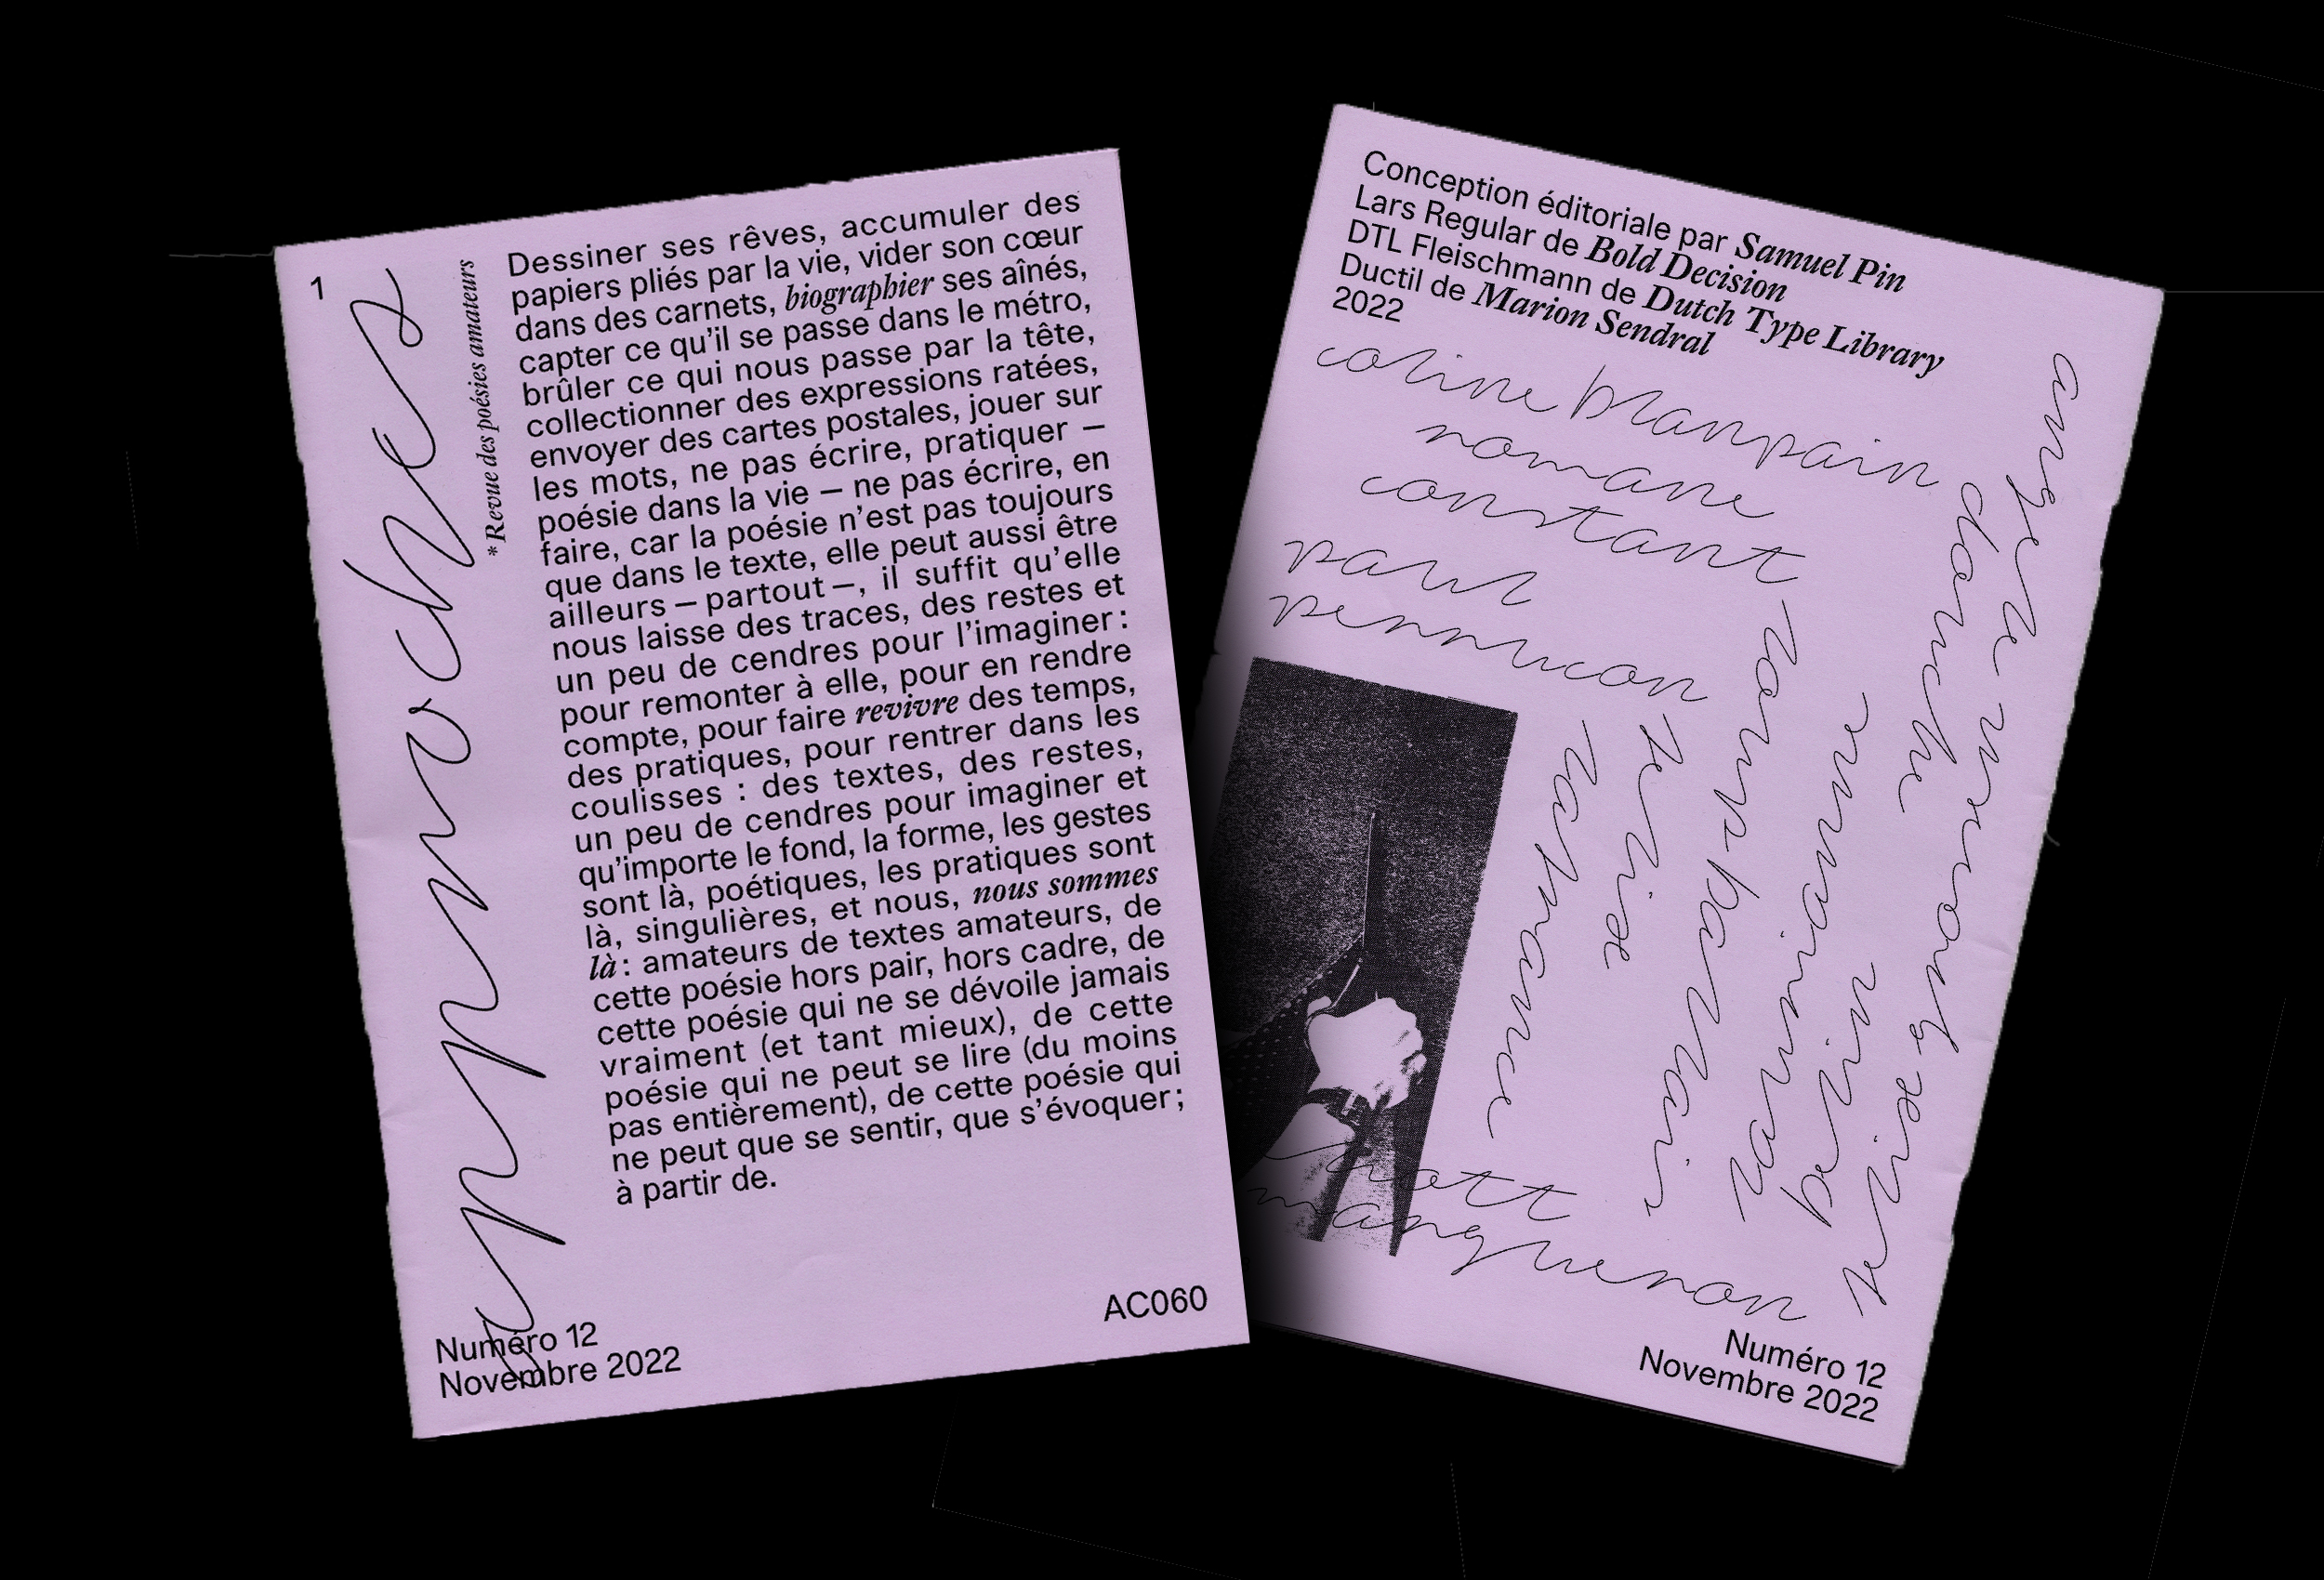 1
approches
*Revue des poésies amateurs
Dessiner ses rêves, accumuler des
papiers pliés par la vie, vider son cœur
dans des carnets, biographier ses aînés,
capter ce qu’il se passe dans le métro,
brûler ce qui nous passe par la tête,
collectionner des expressions ratées,
envoyer des cartes postales, jouer sur
les mots, ne pas écrire, pratiquer —
poésie dans la vie — ne pas écrire, en
faire, car la poésie n’est pas toujours
que dans le texte, elle peut aussi être
ailleurs — partout —, il suffit qu’elle
nous laisse des traces, des restes et
un peu de cendres pour l’imaginer :
pour remonter à elle, pour en rendre
compte, pour faire revivre des temps,
des pratiques, pour rentrer dans les
coulisses : des textes, des restes,
un peu de cendres pour imaginer et
qu’importe le fond, la forme, les gestes
sont là, poétiques, les pratiques sont
là, singulières, et nous, nous sommes
là : amateurs de textes amateurs, de
cette poésie hors pair, hors cadre, de
cette poésie qui ne se dévoile jamais
vraiment (et tant mieux), de cette
poésie qui ne peut se lire (du moins
pas entièrement), de cette poésie qui
ne peut que se sentir, que s’évoquer ;
à partir de.
Numéro 12
Novembre 2022
AC060
Conception éditoriale par Samuel Pin
Lars Regular de Bold Decision
DTL Fleischmann de Dutch Type Library
Ductil de Marion Sendral
2022
coline blanpain
romane
constant
paul
Numéro 12
Novembre 2022